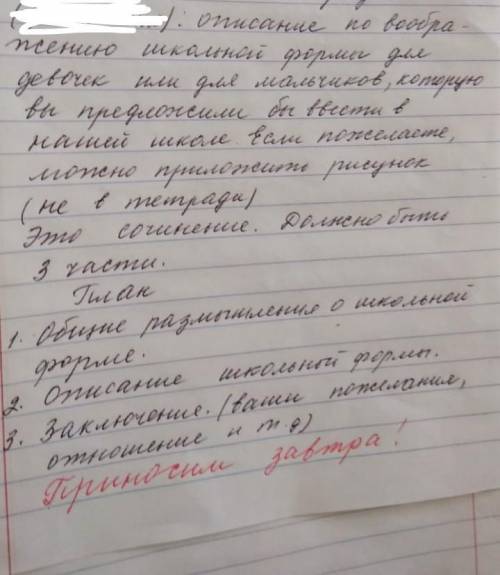 ): описание по вообра-
жению школьной формы для
девочек или для мальчиков, которую
вы предложили бы ввести в
нашей школе. Если пожелаете,
можно приложить рисунок
(не в тетради)
Это сочинение. Должно быть
3 части.
План
1. Общие размышления о школьной
форме.
2. Описание школьной формы.
3. Заключение. (ваши пожелания,
отношение и т.д)
Приносим завтра!